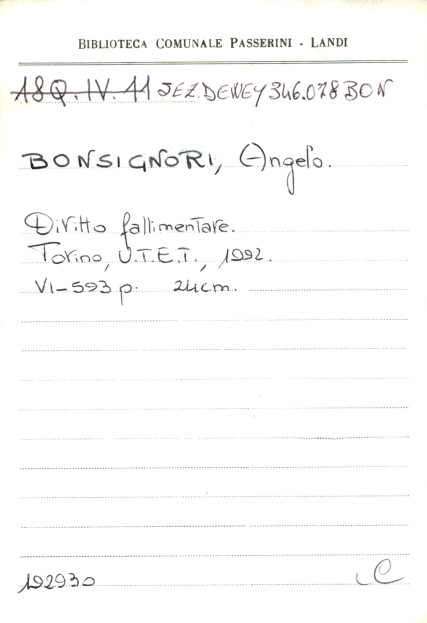 BIBLIOTECA COMUNALE PASSERINI - LANDI
18Q.IV.11 SEZ.DEWEY 346.078 BON
BONSIGNORI, Angelo.
Diritto fallimentare.
Torino, U.T.E.T., 1992.
VI-593 p. 24cm.
192930
C